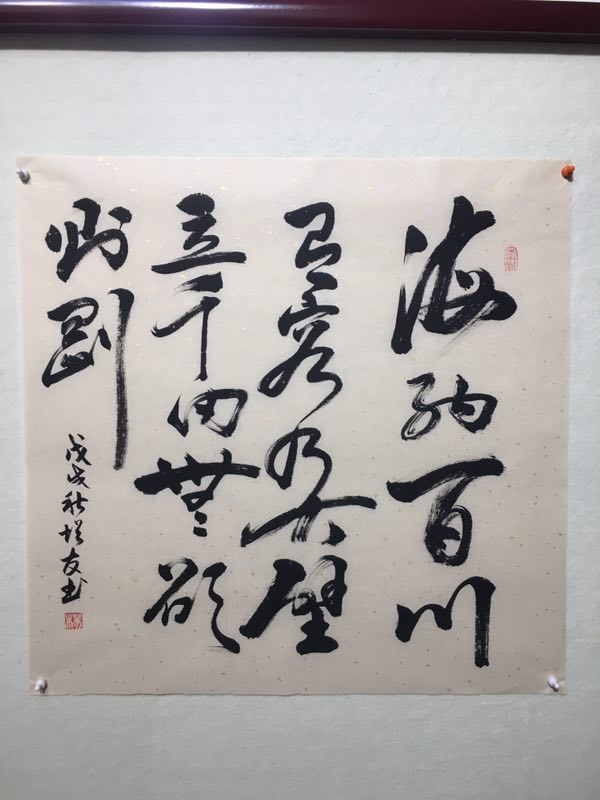 海纳百川
有容乃大壁
立千仞無欲
则刚
戊戌秋友书